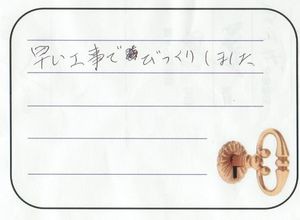 早い工事でびっくりしました